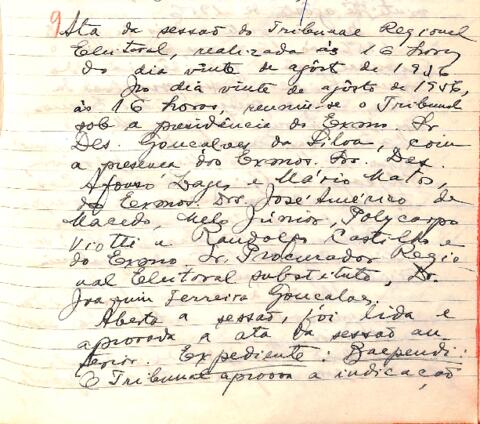 9 Ata da sessão do Tribunal Regional
Eleitoral, realizada às 16 horas
do dia vinte de agôsto de 1956
No dia vinte de agôsto de 1956,
às 16 horas, reuniu-se o Tribunal
sob a presidência do Exmo. Sr.
Des. Gonçalves da Silva, com
a presença dos Exmos. Srs. Des.
Afonso Lages e Mário Matos,
dos Exmos. Drs. José Américo de
Macedo, Melo Júnior, Polycarpo
Viotti e Randolfo Castilho e
do Exmo. Sr. Procurador Regio
nal Eleitoral substituto, Dr.
Joaquim Ferreira Gonçalves.
Aberta a sessão, foi lida e
aprovada a ata da sessão an
terior. Expediente: Baependi:
O Tribunal aprova a indicação